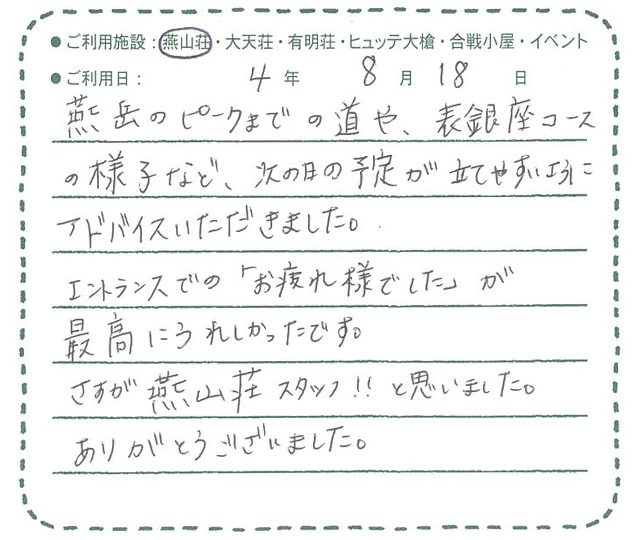 ● ご利用施設：燕山荘・大天荘・有明荘・ヒュッテ大槍・合戦小屋・イベント
● ご利用日： 4 年 8 月 18 日
燕岳のピークまでの道や、表銀座コース
の様子など、次の日の予定が立てやすいように
アドバイスいただきました。
エントランスでの「お疲れ様でした」が
最高にうれしかったです。
さすが燕山荘スタッフ!!と思いました。
ありがとうございました。